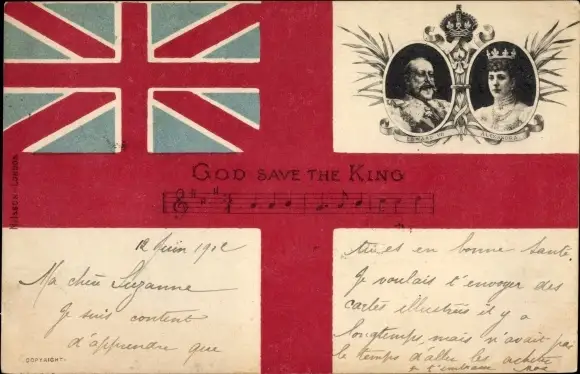 EDWARD VII
ALEXANDRA
GOD SAVE THE KING
London
12 Juin 1902
Ma chère Suzanne
Je suis content
d'apprendre que
COPYRIGHT.
tu es en bonne santé.
Je voulais t'envoyer des
cartes illustrées il y a
longtemps mais n'avait pas
le temps d'aller les acheter
t'embrasse